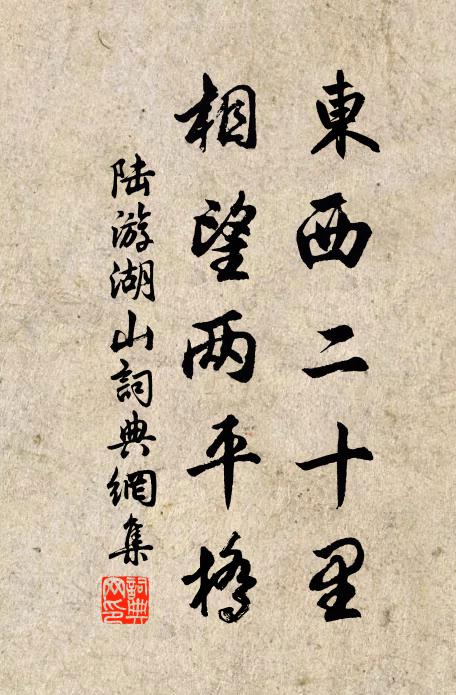 東西二十里
相望两平橋
陆游湖山詞典網集
詞典网印